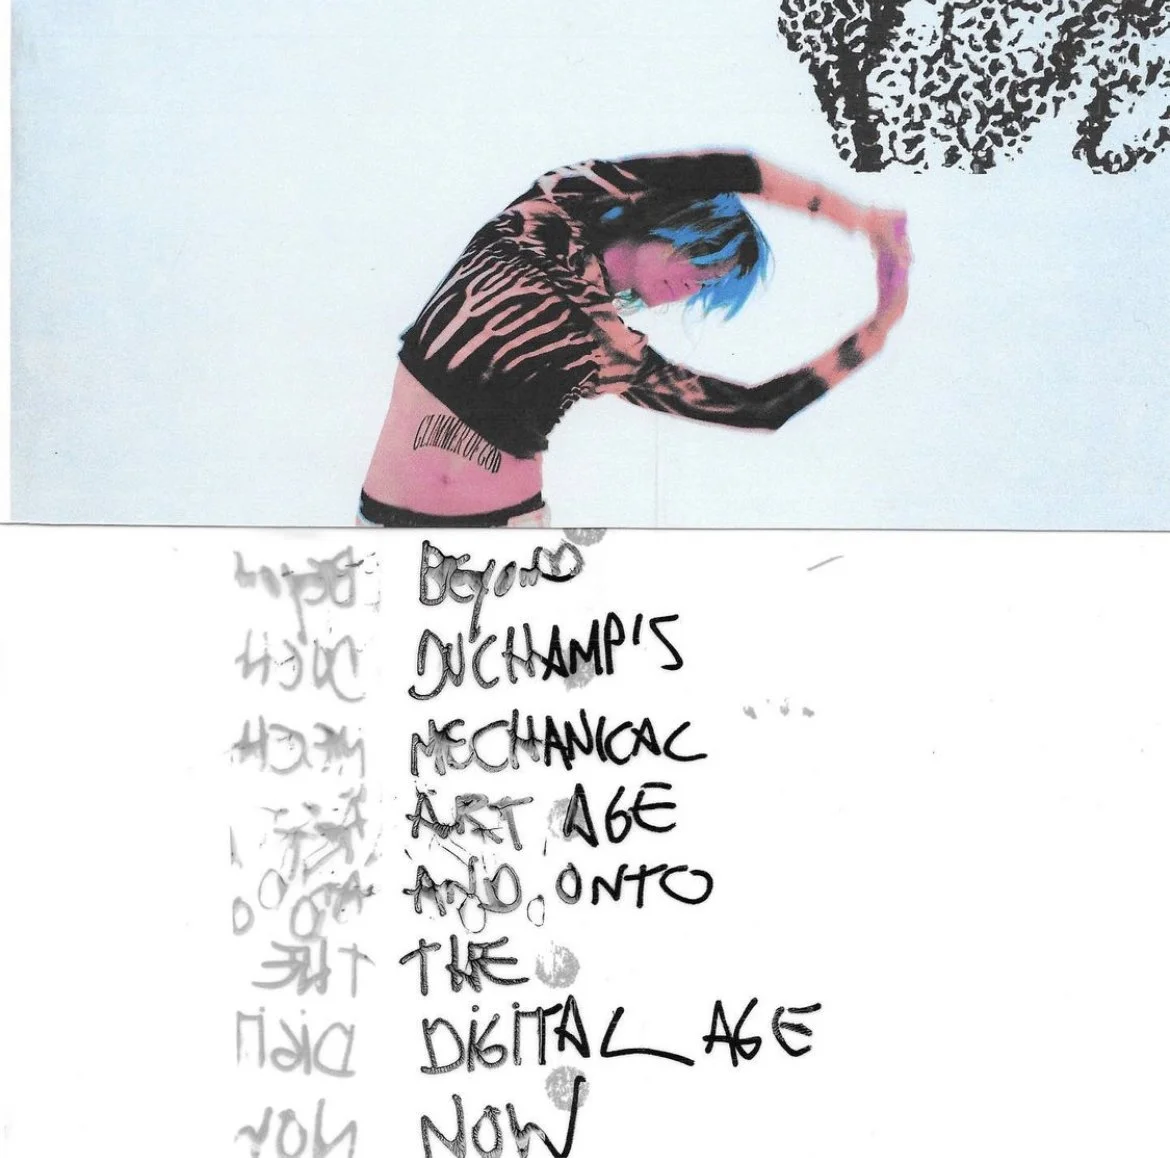 GLIMMER OF GOD
BEYOND
DUCHAMP'S
MECHANICAL
ART AGE
AND ONTO
THE
DIGITAL AGE
NOW